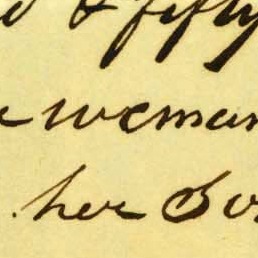 & fifty
woman
her So